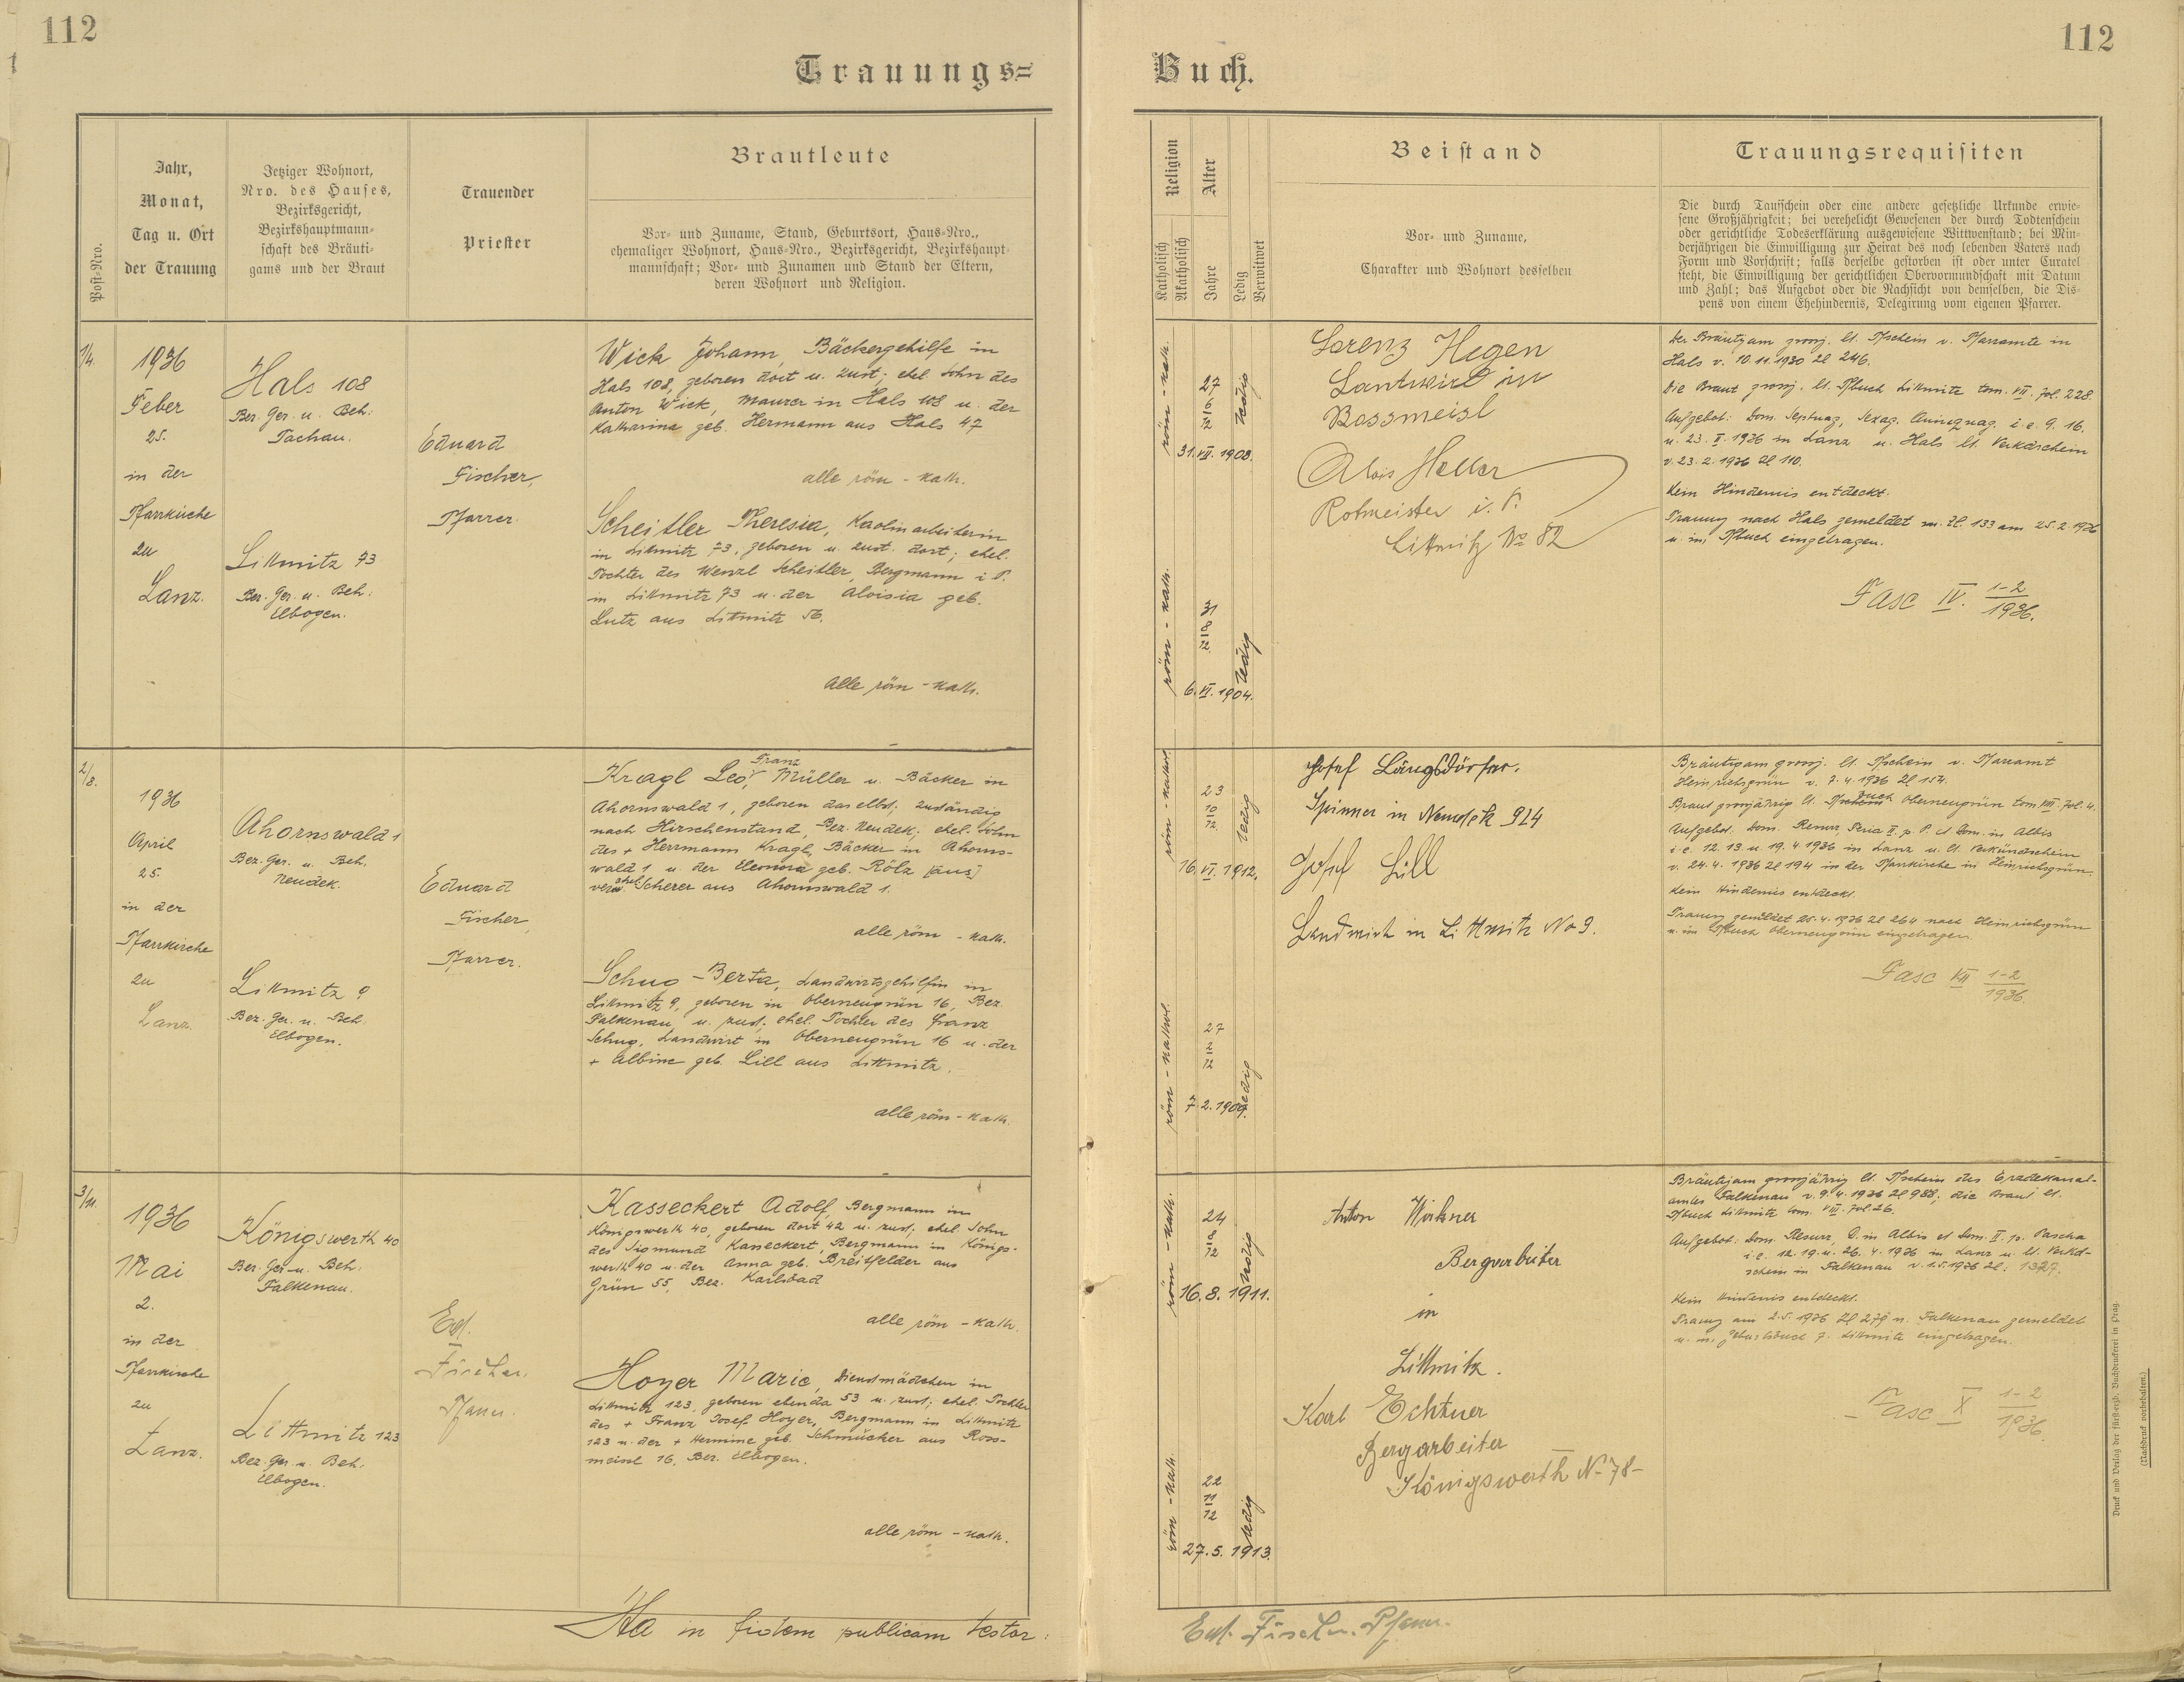 112
112
Trauungs=
Buch.
Post-Nro.
Jahr,
Monat,
Tag u. Ort
der Trauung
Jetziger Wohnort,
Nro. des Hauses,
Bezirksgericht,
Bezirkshauptmann-
schaft des Bräuti-
gams und der Braut
Trauender
Priester
Brautleute
Vor- und Zuname, Stand, Geburtsort, Haus-Nro.,
ehemaliger Wohnort, Haus-Nro., Bezirksgericht, Bezirkshaupt-
mannschaft; Vor- und Zunamen und Stand der Eltern,
deren Wohnort und Religion.
Religion
Katholisch
Akatholisch
Alter
Jahre
Ledig
Verwitwet
Beistand
Vor- und Zuname,
Charakter und Wohnort desselben
Trauungsrequisiten
Die durch Taufschein oder eine andere gesetzliche Urkunde erwie-
sene Großjährigkeit; bei verehelicht Gewesenen der durch Todtenschein
oder gerichtliche Todeserklärung ausgewiesene Wittwenstand; bei Min-
derjährigen die Einwilligung zur Heirat des noch lebenden Vaters nach
Form und Vorschrift; falls derselbe gestorben ist oder unter Curatel
steht, die Einwilligung der gerichtlichen Obervormundschaft mit Datum
und Zahl; das Aufgebot oder die Nachsicht von demselben, die Dis-
pens von einem Ehehindernis, Delegirung vom eigenen Pfarrer.
1/4.
1936
Feber
25.
in der
Pfarrkirche
zu
Lanz.
Hals 108
Bez. Ger. u. Beh:
Tachau.
Littmitz 73
Bez. Ger. u. Beh:
Elbogen.
Eduard
Fischer,
Pfarrer.
Wick Johann, Bäckergehilfe in
Hals 108, geboren dort u. zust; ehel. Sohn des
Anton Wick, Maurer in Hals 108 u. der
Katharina geb. Hermann aus Hals 47
alle röm - kath.
Scheitler Theresia, Kaolinarbeiterin
in Littmitz 73, geboren u. zust. dort; ehel.
Tochter des Wenzl Scheitler, Bergmann i. P.
in Littmitz 73 u. der Aloisia geb.
Lutz aus Littmitz 56.
alle röm - kath.
röm - kath.
27
6
12
31. VII. 1908.
ledig
röm - kath.
31
8
12
6. VI. 1904.
ledig
Lorenz Hegen
Lantwirt in
Bossmeisl
Alois Heller
Rotmeister i. P.
Littmitz No 82
Der Bräutigam grosj. lt. Tfschein v. Pfarramte in
Hals v. 10. 11. 1930 Zl 246.
Die Braut grosj. lt. Tfbuch Littmitz tom. VII. fol. 228.
Aufgebot: Dom. Septuag, Sexag. Quinquag. i. e. 9. 16.
u. 23. II. 1936 in Lanz u. Hals lt. Verkdschein
v. 23. 2. 1936 Zl 110.
Kein Hindernis entdeckt.
Trauung nach Hals gemeldet m. Zl. 133 am 25. 2. 1936
u. im Tfbuch eingetragen.
Fasc IV. 1-2
1936.
2/8.
1936
April
25.
in der
Pfarrkirche
zu
Lanz.
Ahornswald 1
Bez. Ger. u. Beh.
Neudek.
Littmitz 9
Bez. Ger. u. Beh.
Elbogen.
Eduard
Fischer,
Pfarrer.
Franz
Kragl Leo, Müller u. Bäcker in
Ahornswald 1, geboren daselbst; zuständig
nach Hirschenstand, Bez. Neudek; ehel. Sohn
des + Herrmann Kragl, Bäcker in Ahorns-
wald 1 u. der Eleonora geb. Rölz (aus)
verehel. Scherer aus Ahornswald 1.
alle röm - kath.
Schug Berta, Landwirtsgehilfin in
Littmitz 9, geboren in Oberneugrün 16, Bez.
Falkenau, u. zust. ehel. Tochter des Franz
Schug, Landwirt in Oberneugrün 16 u. der
+ Albine geb. Lill aus Littmitz.
alle röm - kath.
röm - kathol.
23
10
12
16. VI. 1912.
ledig
röm - kathol.
27
2
12
7. 2. 1909.
ledig
Josef Längsdörfer.
Spinner in Neudek 924
Josef Lill
Landwirt in Littmitz No 9.
Bräutigam grosj. lt. Tfschein v. Pfarramt
Heinrichsgrün v. 7. 4. 1936 Zl 152.
Braut grosjährig lt. Tfbuch Oberneugrün tom VIII. fol. 4.
Aufgebot. Dom. Resurr, Feria II. p. P. et Dom. in Albis
i. e. 12. 13. u. 19. 4. 1936 in Lanz u. lt. Verkündschein
v. 24. 4. 1936 Zl 194 in der Pfarrkirche in Heinrichsgrün.
Kein Hindernis entdeckt.
Trauung gemeldet 25. 4. 1936 Zl 264 nach Heinrichsgrün
u. im Tfbuch Oberneugrün eingetragen.
Fasc VII 1-2
1936.
3/11.
1936
Mai
2.
in der
Pfarrkirche
zu
Lanz.
Königswerth 40
Bez. Ger. u. Beh:
Falkenau.
Littmitz 123
Bez. Ger. u. Beh.
Elbogen.
Ed.
Fischer,
Pfarrer.
Kasseckert Adolf, Bergmann in
Königswerth 40, geboren dort 42 u. zust; ehel. Sohn
des Sigmund Kasseckert, Bergmann in Königs-
werth 40 u. der Anna geb. Breitfelder aus
Grün 55, Bez. Karlsbad
alle röm - kath.
Hoyer Marie, Dienstmädchen in
Littmitz 123, geboren ebenda 53 u. zust; ehel. Tochter
des + Franz Josef Hoyer, Bergmann in Littmitz
123 u. der + Hermine geb. Schmücker aus Ross-
meissl 16, Bez. Elbogen.
alle röm - kath.
röm - kath.
24
8
12
16. 8. 1911.
ledig
röm - kath.
22
11
12
27. 5. 1913.
ledig
Anton Wirkner
Bergarbeiter
in
Littmitz.
Karl Echtner
Bergarbeiter
Königswerth No 78-
Bräutigam grosjährig lt. Tfschein des Erzdekanal-
amtes Falkenau v. 9. 4. 1936 Zl 988; die Braut lt.
Tfbuch Littmitz tom. VIII. fol. 26.
Aufgebot: Dom. Resurr, D. in Albis et Dom. II. p. Pascha
i. e. 12. 19. u. 26. 4. 1936 in Lanz u. lt. Verkd-
schein in Falkenau v. 1. 5. 1936 Zl: 1327.
Kein Hindernis entdeckt.
Trauung am 2. 5. 1936 Zl 279 n. Falkenau gemeldet
u. im Geburtsbuch f. Littmitz eingetragen.
Fasc X 1-2
1936.
Ita in fidem publicam testor:
Ed. Fischer, Pfarrer.
Druck und Verlag der fürsterzb. Buchdruckerei in Prag.
(Nachdruck vorbehalten.)